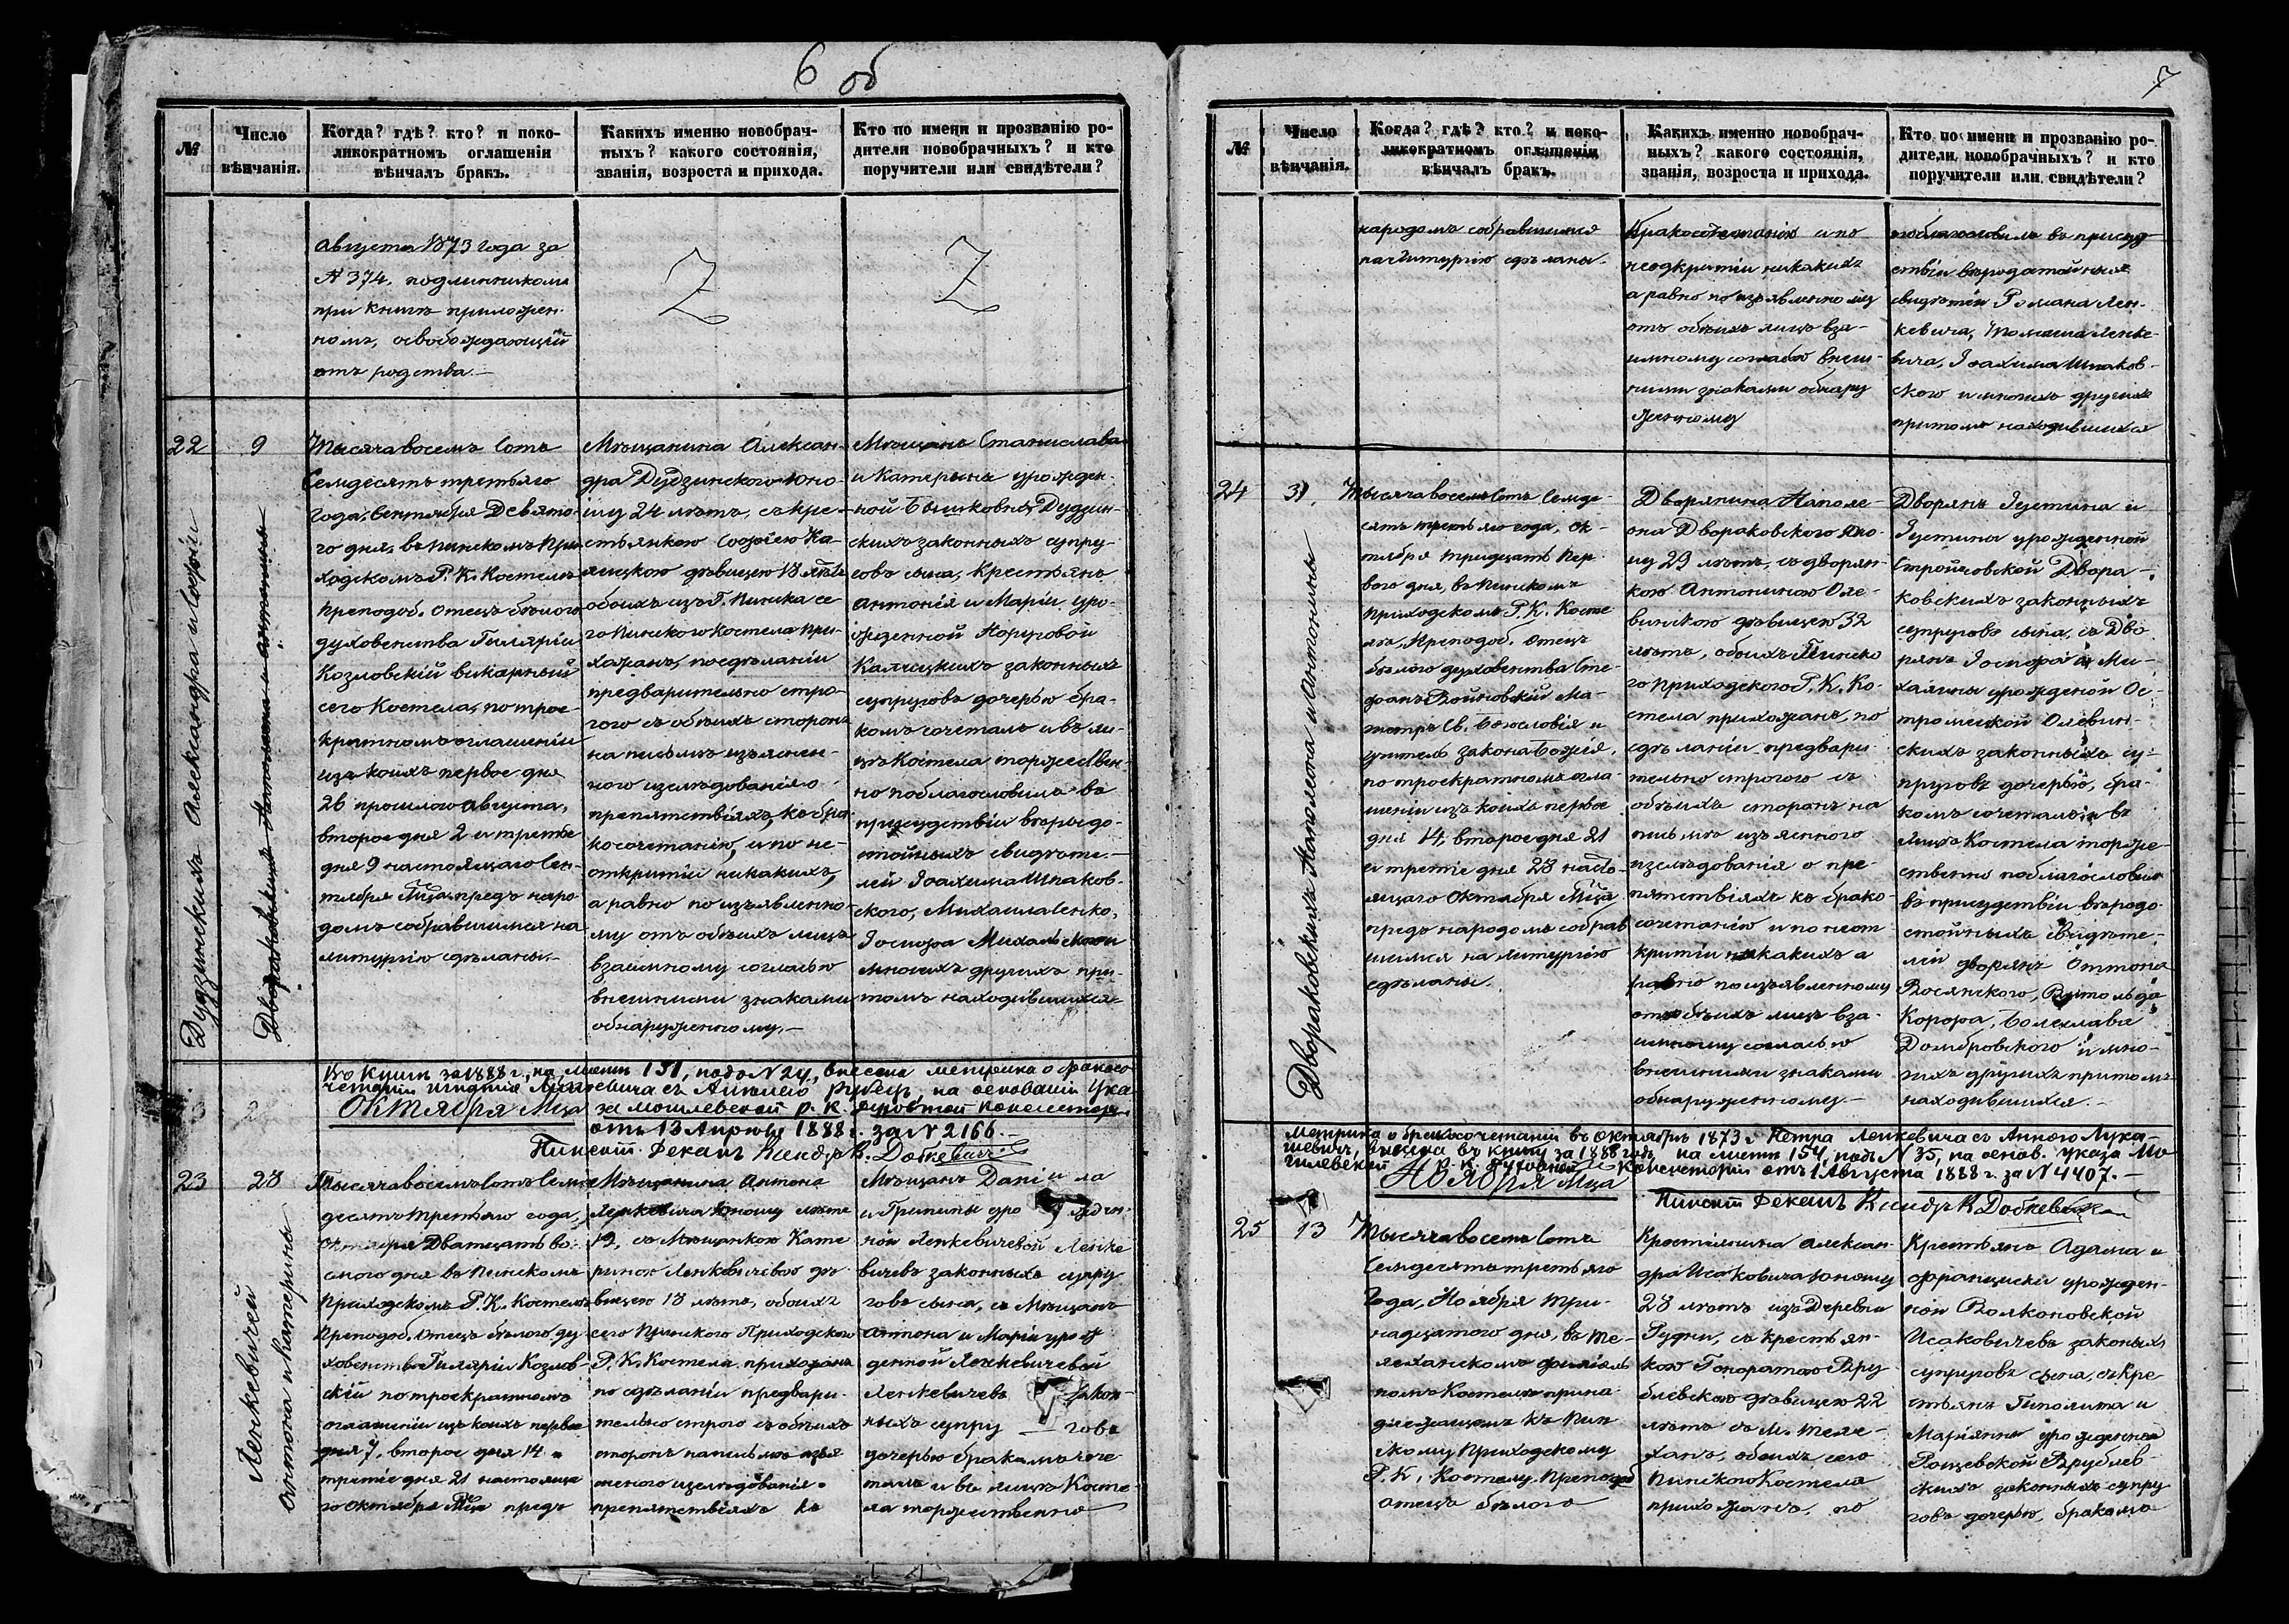 6 об
№
Число
вѣнчанія.
Когда? гдѣ? кто? и поко-
ликократномъ оглашеніи
вѣнчалъ бракъ.
Какихъ именно новобрач-
ныхъ? какого состоянія,
званія, возроста и прихода.
Кто по имени и прозванію ро-
дители новобрачныхъ? и кто
поручители или свидѣтели?
августа 1873 года за
№ 374, подлинникомъ
при книгѣ приложен-
номъ, освобождающій
отъ родства.—
22
9
Дудзинскихъ Александра и Софіи
Тысяча восемь Сотъ
Семдесятъ третьяго
года, Сентября Девято-
го дня, въ Пинскомъ При-
ходскомъ Р. К. Костелѣ
Преподоб. Отецъ бѣлого
духовенства Гилярій
Козловскій викарный
сего Костела, по трое-
кратномъ оглашеніи
изъ коихъ первое дня
26 прошлого августа,
второе дня 2 и третье
дня 9 настоящаго Сен-
тября М̃ца предъ наро-
домъ собравшимся на
литургію сдѣланы.—
Мѣщанина Алексан-
дра Дудзинского юно-
шу 24 лѣтъ, съ кре-
стьянкою Софіею Ка-
лицкою дѣвицею 18 лѣтъ
обоихъ изъ Г. Пинска се-
го Пинского Костела При-
хожанъ, по сдѣланіи
предварительно стро-
гого съ обѣихъ сторонъ
на письмѣ изъяснен-
ного изслѣдованія о
препятствіяхъ къ бра-
косочетанію, и по не-
открытіи никакихъ,
а равно по изъявленно-
му отъ обѣихъ лицъ
взаимному согласью
внешними знаками
обнаруженному.—
Мѣщанъ Станислава
и Катерыны урожден-
ной Дудзин-
скихъ законныхъ супру-
говъ сына, Крестьянъ
Антонія и Маріи уро-
жденной
Калицкихъ законныхъ
супруговъ дочерью бра-
комъ сочеталъ и въ ли-
цѣ Костела торжествен-
но поблагословилъ въ
присудствіи вѣродо-
стойныхъ свидѣте-
лей Іоахима Шпаков-
ского, Михаила Сенко,
Іосифа и
многихъ другихъ при-
томъ находившихся.
Въ Книгѣ за 1888 г., на листѣ 151, подъ N 24, внесена метрика о бракосо-
четаніи Ленкевича съ Анжелею Рубецъ, на основаніи Ука-
за Могилевской р. к. духовной консисторіи
отъ 13 Апрѣля 1888 г. за N 2166.
Пинскій Деканъ Ксендзъ К. Добкевичъ
Октября М̃ца
23
28
Ленкевичей
Антона и Катерины
Тысяча восемь Сотъ Сем-
десятъ третьяго года,
Октября Двацать во-
смого дня въ Пинскомъ
Приходскомъ Р. К. Костелѣ
Преподоб. Отецъ бѣлого ду-
ховенства Гилярій Козлов-
скій по троекратномъ
оглашеніи изъ коихъ первое
дня 7, второе дня 14 и
третіе дня 21 настояща-
го Октября М̃ца предъ
Мѣщанина Антона
Ленкевича юношу лѣтъ
19, съ Мѣщанкою Кате-
риною Ленкевичевою дѣ-
вицею 18 лѣтъ, обоихъ
сего Пинского Приходского
Р. К. Костела прихожанъ
по сдѣланіи предвари-
тельно строго съ обѣихъ
сторонъ на письмѣ изъя-
сненого изслѣдованія о
препятствіяхъ къ
Мѣщанъ Даніила
и уро жден-
ной Ленкевичевой Ленке-
вичевъ законныхъ супру-
говъ сына, съ Мѣщанъ
Антона и Маріи урож-
денной Ленкевичевой
Ленкевичевъ закон-
ныхъ супру говъ
дочерью бракомъ соче-
талъ и въ лицѣ Косте-
ла торжественно
7
№
Число
вѣнчанія.
Когда? гдѣ? кто? и поко-
ликократномъ оглашеніи
вѣнчалъ бракъ.
Какихъ именно новобрач-
ныхъ? какого состоянія,
званія, возроста и прихода.
Кто по имени и прозванію ро-
дители новобрачныхъ? и кто
поручители или свидѣтели?
народомъ собравшимся
на Литургію сдѣланы.
бракосочетанію и по
неодкрытіи никакихъ
а равно по изъявленному
отъ обѣихъ лицъ вза-
имному согласью внеш-
ними знаками обнару
женному
поблагословилъ въ присуд-
ствіи вѣродостойныхъ
свидѣтелей Романа Лен-
кевича, Томаша Ленке-
вича, Іоахима Шпаков-
ского и многихъ другихъ
притомъ находившихся
24
31
Двораковскихъ Наполеона и Антонины
Тысяча восемь Сотъ Семде-
сятъ третьяго года, Ок-
тября тридцать Пер-
вого дня, въ Пинскомъ
Приходскомъ Р. К. Косте-
лѣ, Преподоб. Отецъ
бѣлого духовенства Сте-
фанъ Войновскій Ма-
гистръ Св. Богословія и
учитель закона Божія,
по троекратномъ огла-
шеніи изъ коихъ первое
дня 14, второе дня 21
и третіе дня 28 насто-
ящаго Октября М̃ца
предъ народомъ собрав
шимся на литургію
сдѣланы.
Дворянина Наполе-
она Двораковского юно-
шу 29 лѣтъ, съ дворян-
кою Антониною Оле-
винскою дѣвицею 32
лѣтъ, обоихъ Пинско
го Приходского Р. К. Ко-
стела прихожанъ, по
сдѣланіи предвари-
тельно строгого съ
обѣихъ сторонъ на
письмѣ изъясненного
изслѣдованія о пре-
пятствіяхъ къ брако-
сочетанію и по неот
крытіи никакихъ а
равно по изъявленному
отъ обѣихъ лицъ вза-
имному согласью
внешними знаками
обнаруженному.—
Дворянъ Іустина и
Іустины урожденной
Двора-
ковскихъ законныхъ
супруговъ сына, съ Дво-
рянъ Іосифа и Ми-
халины урожденой Ос-
тромецкой Олевин-
скихъ законныхъ су-
пруговъ дочерью, бра-
комъ сочеталъ и въ
лицѣ Костела торже-
ственно поблагословилъ
въ присудствіи вѣродо-
стойныхъ свидѣте-
лей дворянъ Антона
Витольда
Болеслава
Домбровского и мно-
гихъ другихъ притомъ
находившихся.—
Метрика о бракосочетаніи въ Октябрѣ 1873 г. Петра Ленкевича съ Анною Лука-
шевичъ, внесена въ книгу за 1888 годъ, на листѣ 154, подъ N 35, на основ. указа Мо-
гилевской р. к. духовной Консисторіи отъ 1 Августа 1888 г. за N 4407.—
Пинскій Деканъ Ксендзъ К Добкевичъ
Ноября М̃ца
25
13
Тысяча восемь Сотъ
Семдесятъ третьяго
Года, Ноября три-
надцатого дня, въ Те-
леханскомъ филіаль
номъ Костелѣ прина-
длежащемъ къ Пин
скому Приходскому
Р. К. Костелу. Преподоб
Отецъ бѣлого
Крестьянина Алексан-
дра Исаковича юношу
28 лѣтъ изъ Деревни
Рудни, съ крестьян-
кою Гоноратою Вру-
блевскою дѣвицею 22
лѣтъ съ М. Теле-
ханъ, обоихъ сего
Пинского Костела
прихожанъ, по
Крестьянъ Адама и
Францишки урожден-
ной
Исаковичевъ законыхъ
супруговъ сына, съ кре
стьянъ Гиполита и
Маріянны урожденной
Врублев-
скихъ законныхъ супру
говъ дочерью, бракомъ